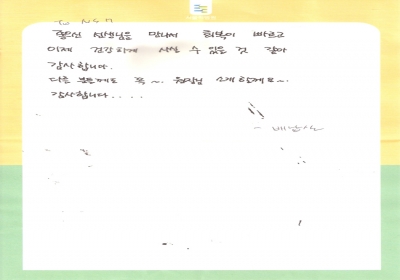 좋으신 선생님을 만나서 회복이 빠르고
이제 건강하게 사실 수 있을 것 같아
감사합니다.
다른 분들께도 꼭~. 원장님 소개할께요~.
감사합니다....